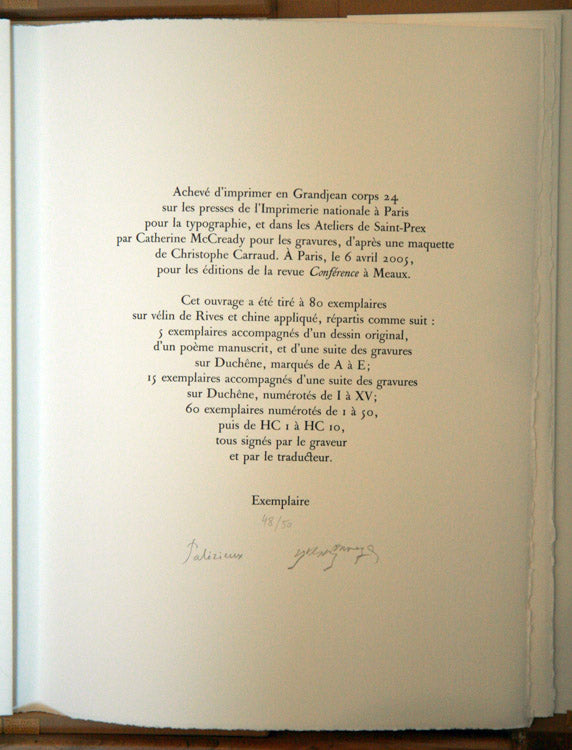 Achevé d'imprimer en Grandjean corps 24
sur les presses de l'Imprimerie nationale à Paris
pour la typographie, et dans les Ateliers de Saint-Prex
par Catherine McCready pour les gravures, d'après une maquette
de Christophe Carraud. À Paris, le 6 avril 2005,
pour les éditions de la revue Conférence à Meaux.
Cet ouvrage a été tiré à 80 exemplaires
sur vélin de Rives et chine appliqué, répartis comme suit :
5 exemplaires accompagnés d'un dessin original,
d'un poème manuscrit, et d'une suite des gravures
sur Duchêne, marqués de A à E;
15 exemplaires accompagnés d'une suite des gravures
sur Duchêne, numérotés de I à XV;
60 exemplaires numérotés de 1 à 50,
puis de HC 1 à HC 10,
tous signés par le graveur
et par le traducteur.
Exemplaire
48/50
Palézieux